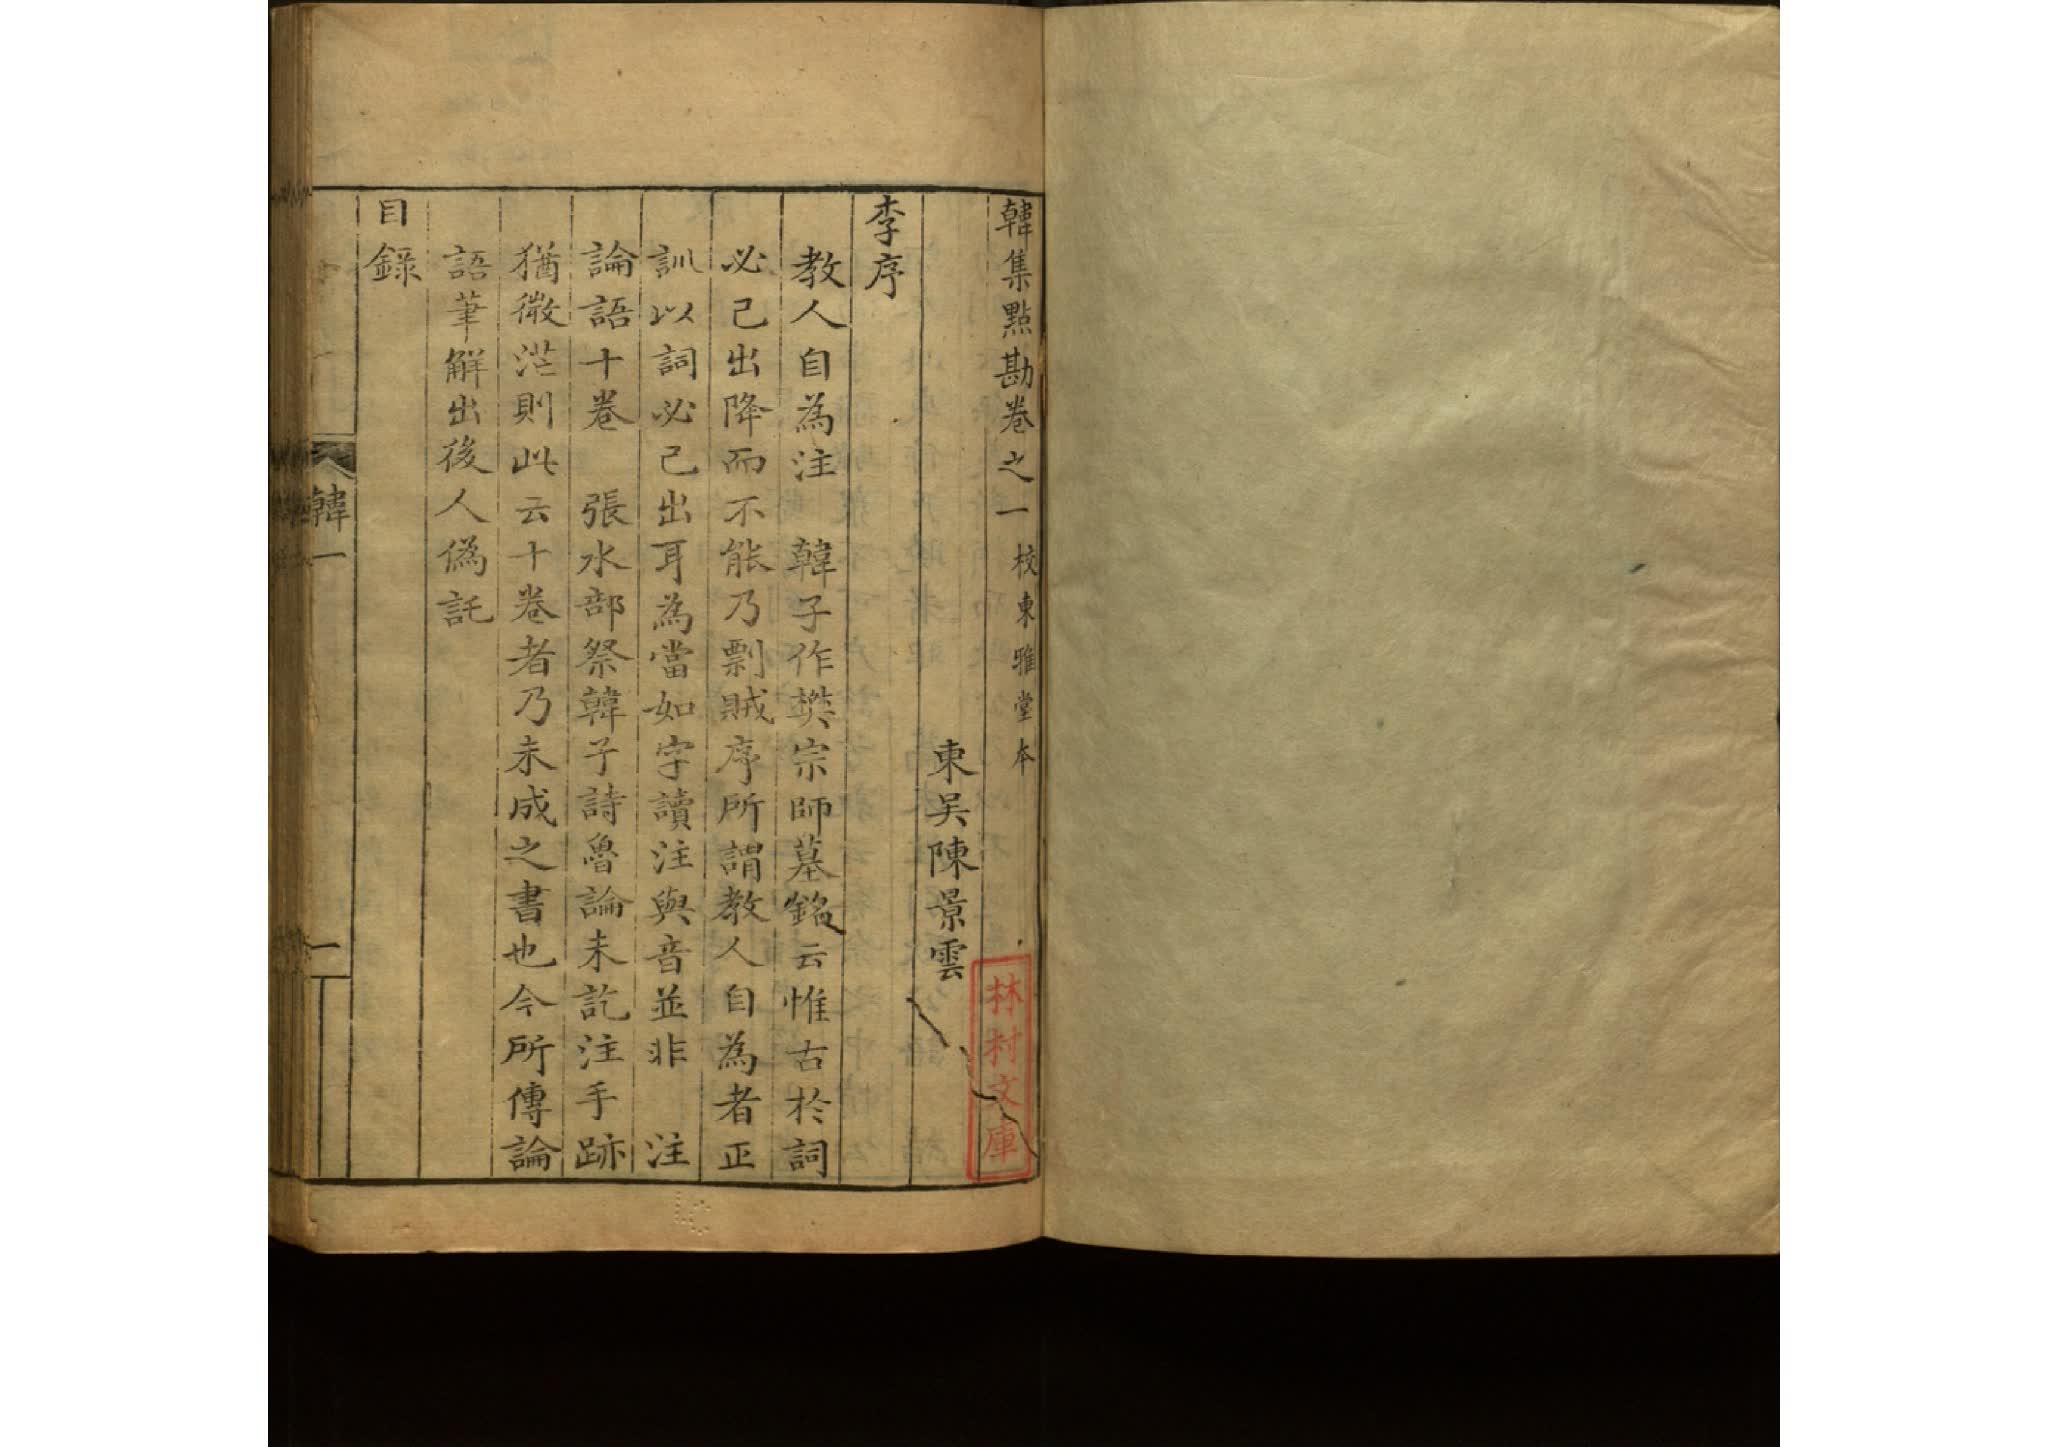 韓集點勘卷之一 校東雅堂本
東吴陳景雲
李序
教人自為注 韓子作樊宗師墓銘云惟古於詞
必己出降而不能乃剽賊序所謂教人自為者正
訓以詞必己出耳為當如字讀注與音並非 注
論語十卷 張水部祭韓子詩魯論未訖注手跡
猶微茫則此云十卷者乃未成之書也今所傳論
語筆解出後人偽託
目錄
韓一
一
林村文庫